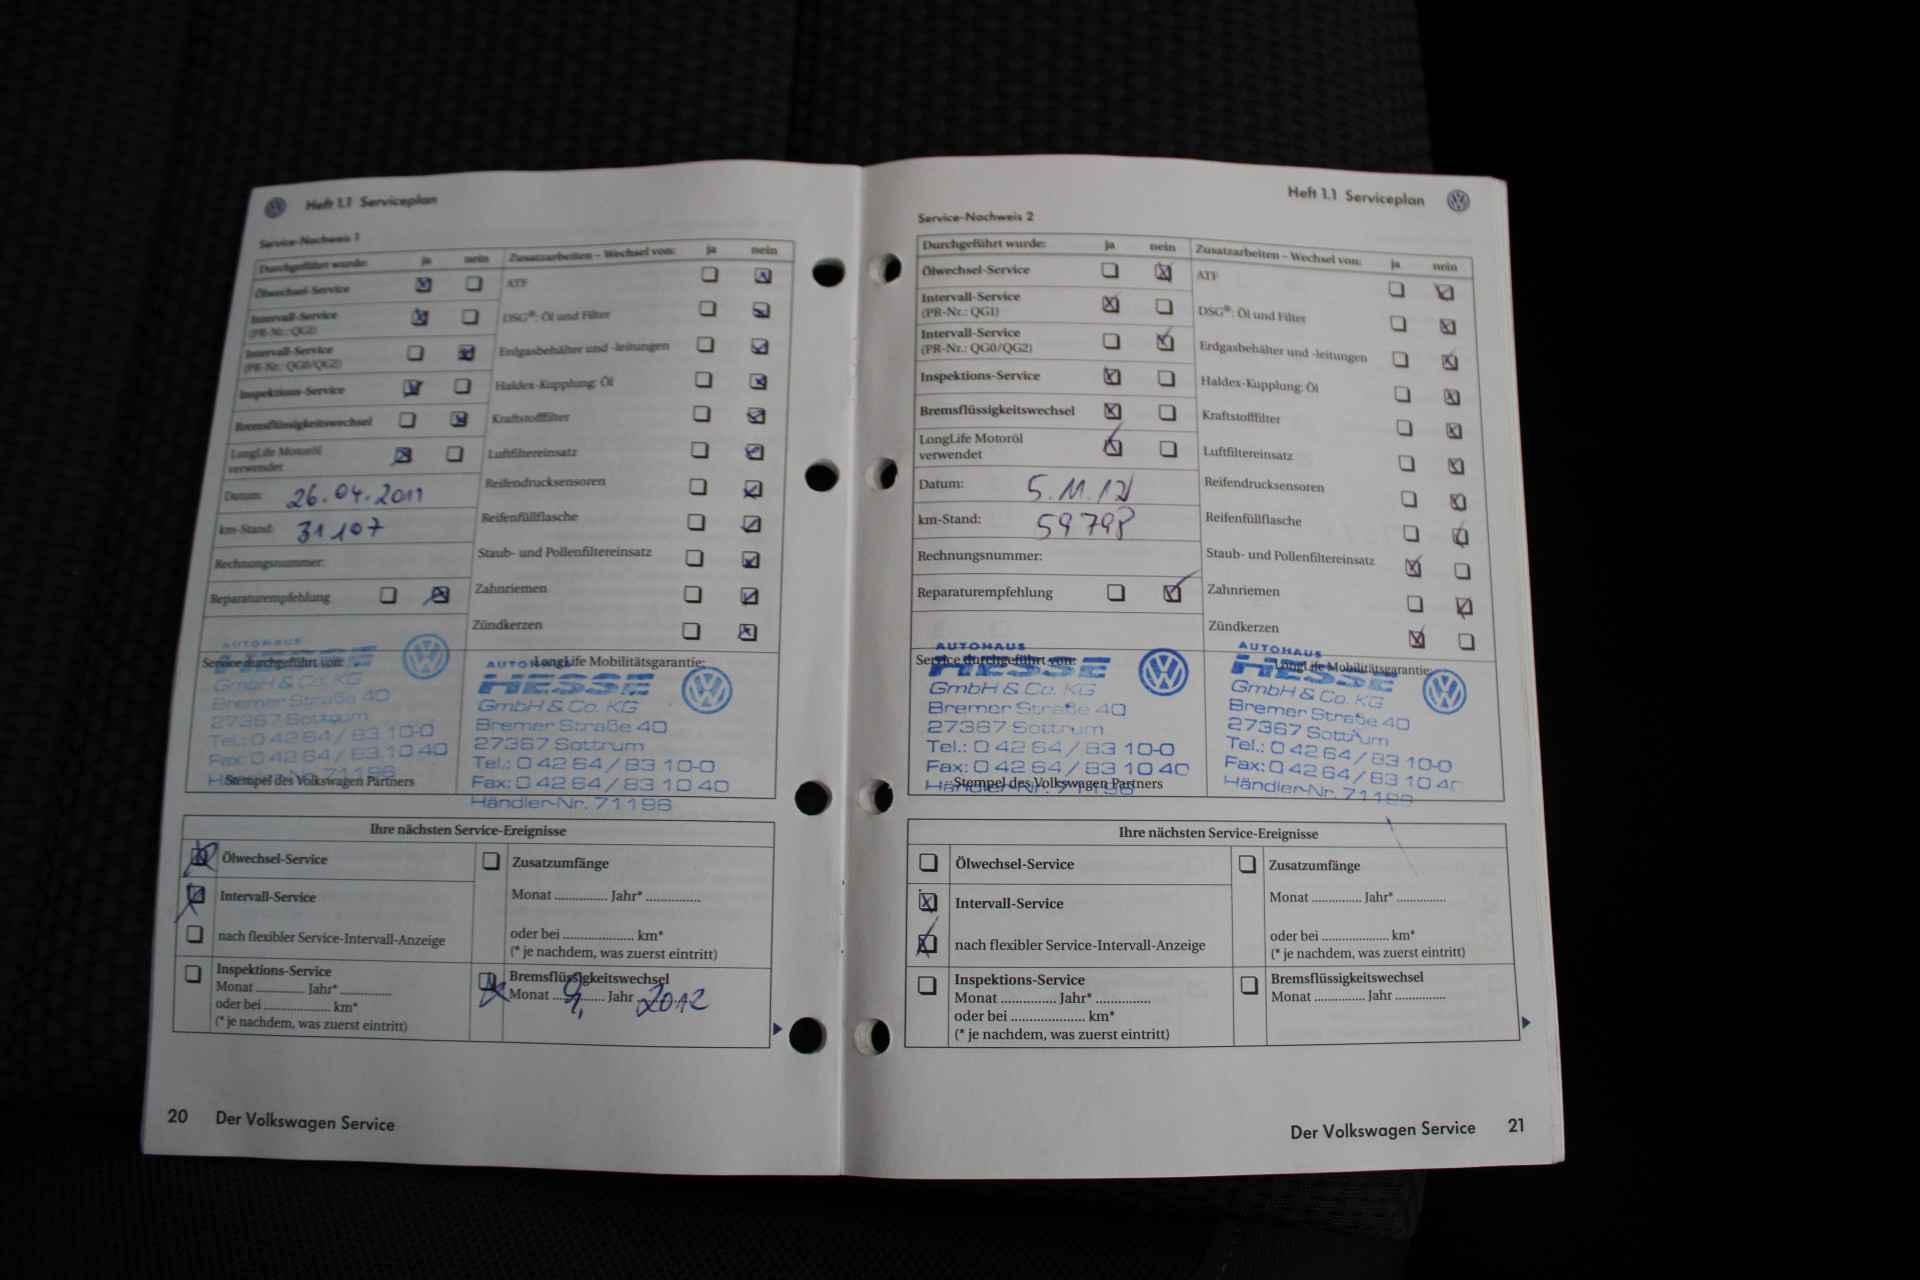 Heft 1.1 Serviceplan
Service-Nachweis 1
Durchgeführt wurde: ja nein
Ölwechsel-Service
Intervall-Service
(PR-Nr.: QG1)
Intervall-Service
(PR-Nr.: QG0/QG2)
Inspektions-Service
Bremsflüssigkeitswechsel
LongLife Motoröl
verwendet
Datum: 26.04.2011
km-Stand: 31107
Rechnungsnummer:
Reparaturempfehlung
Zusatzarbeiten – Wechsel von: ja nein
ATF
DSG®: Öl und Filter
Erdgasbehälter und -leitungen
Haldex-Kupplung: Öl
Kraftstofffilter
Luftfiltereinsatz
Reifendrucksensoren
Reifenfüllflasche
Staub- und Pollenfiltereinsatz
Zahnriemen
Zündkerzen
Service durchgeführt von:
AUTOHAUS
HESSE
GmbH & Co. KG
Bremer Straße 40
27367 Sottrum
Tel.: 0 42 64 / 83 10-0
Fax: 0 42 64 / 83 10 40
Händler-Nr. 71196
Stempel des Volkswagen Partners
LongLife Mobilitätsgarantie:
AUTOHAUS
HESSE
GmbH & Co. KG
Bremer Straße 40
27367 Sottrum
Tel.: 0 42 64 / 83 10-0
Fax: 0 42 64 / 83 10 40
Händler-Nr. 71196
Ihre nächsten Service-Ereignisse
Ölwechsel-Service
Intervall-Service
nach flexibler Service-Intervall-Anzeige
Inspektions-Service
Monat ............. Jahr* .............
oder bei ..................... km*
(* je nachdem, was zuerst eintritt)
Zusatzumfänge
Monat ............. Jahr* .............
oder bei ..................... km*
(* je nachdem, was zuerst eintritt)
Bremsflüssigkeitswechsel
Monat 9, Jahr 2012
20 Der Volkswagen Service
Heft 1.1 Serviceplan
Service-Nachweis 2
Durchgeführt wurde: ja nein
Ölwechsel-Service
Intervall-Service
(PR-Nr.: QG1)
Intervall-Service
(PR-Nr.: QG0/QG2)
Inspektions-Service
Bremsflüssigkeitswechsel
LongLife Motoröl
verwendet
Datum: 5.11.12
km-Stand: 59798
Rechnungsnummer:
Reparaturempfehlung
Zusatzarbeiten – Wechsel von: ja nein
ATF
DSG®: Öl und Filter
Erdgasbehälter und -leitungen
Haldex-Kupplung: Öl
Kraftstofffilter
Luftfiltereinsatz
Reifendrucksensoren
Reifenfüllflasche
Staub- und Pollenfiltereinsatz
Zahnriemen
Zündkerzen
Service durchgeführt von:
AUTOHAUS
HESSE
GmbH & Co. KG
Bremer Straße 40
27367 Sottrum
Tel.: 0 42 64 / 83 10-0
Fax: 0 42 64 / 83 10 40
Händler-Nr. 71196
Stempel des Volkswagen Partners
LongLife Mobilitätsgarantie:
AUTOHAUS
HESSE
GmbH & Co. KG
Bremer Straße 40
27367 Sottrum
Tel.: 0 42 64 / 83 10-0
Fax: 0 42 64 / 83 10 40
Händler-Nr. 71196
Ihre nächsten Service-Ereignisse
Ölwechsel-Service
Intervall-Service
nach flexibler Service-Intervall-Anzeige
Inspektions-Service
Monat ............. Jahr* .............
oder bei ..................... km*
(* je nachdem, was zuerst eintritt)
Zusatzumfänge
Monat ............. Jahr* .............
oder bei ..................... km*
(* je nachdem, was zuerst eintritt)
Bremsflüssigkeitswechsel
Monat ............. Jahr .............
Der Volkswagen Service 21